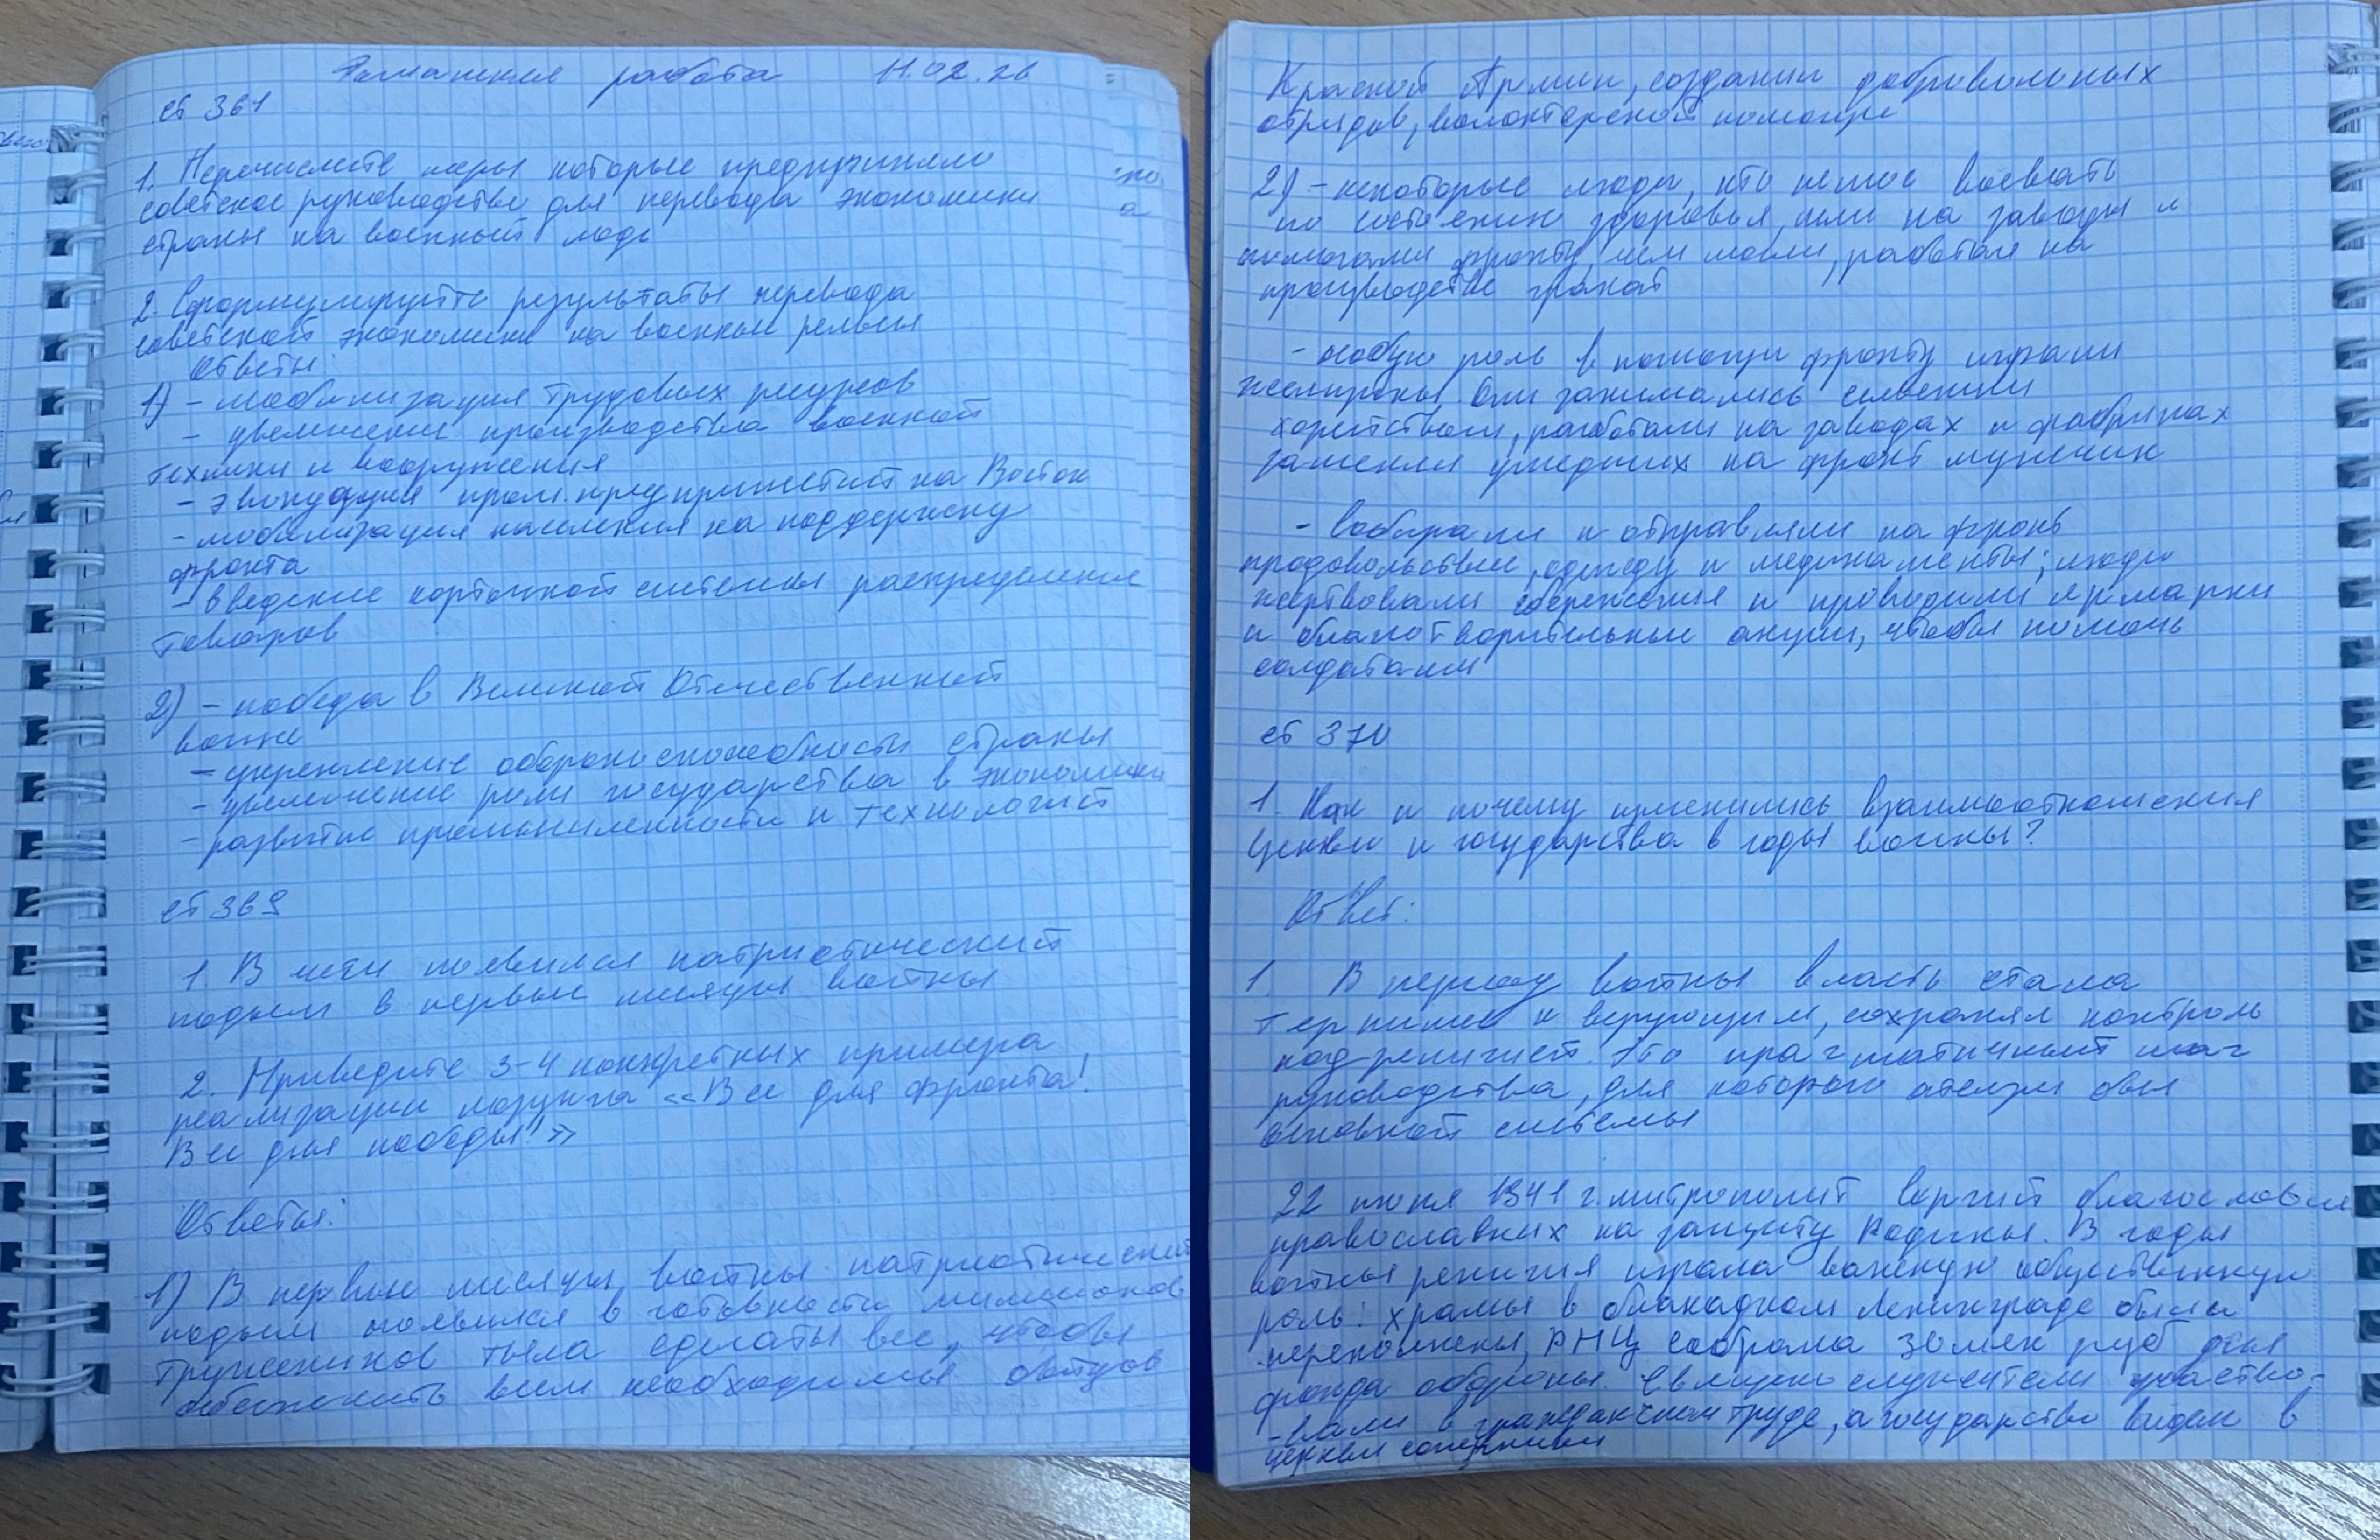 Домашняя работа 11.02.26
ст 361
1. Перечислите меры которые предприняло
советское руководство для перевода экономики
страны на военный лад
2. Сформулируйте результаты перевода
советской экономики на военные рельсы
Ответы
1) - мобилизация трудовых ресурсов
- увеличение производства военной
техники и вооружения
- эвакуация пром. предприятий на Восток
- мобилизация населения на поддержку
фронта
- введение карточной системы распределения
товаров
2) - победа в Великой Отечественной
войне
- укрепление обороноспособности страны
- увеличение роли государства в экономики
- развитие промышленности и технологий
ст 369
1 В чём появился патриотический
подъем в первые месяцы войны
2. Приведите 3-4 конкретных примера
реализации лозунга «Все для фронта!
Все для победы!»
Ответы:
1) В первые месяцы войны патриотический
подъем появился в готовности миллионов
тружеников тыла сделать все, чтобы
обеспечить всем необходимым бойцов
Красной Армии, создании добровольных
отрядов, волонтерской помощи
2) - некоторые люди, кто не мог воевать
по состоянию здоровья, шли на заводы и
помогали фронту, чем могли, работая на
производстве гранат
- особую роль в помощи фронту играли
женщины. Они занимались сельским
хозяйством, работали на заводах и фабриках
заменяя ушедших на фронт мужчин
- Собирали и отправляли на фронт
продовольствие, одежду и медикаменты; люди
жертвовали сбережения и проводили ярмарки
и благотворительные акции, чтобы помочь
солдатам
ст 370
1. Как и почему изменились взаимоотношения
церкви и государства в годы войны?
Ответ:
1. В период войны власть стала
терпимее к верующим, сохраняя контроль
над религией. Это прагматичный шаг
руководства, для которого атеизм был
основной системы
22 июня 1941 г. митрополит Сергий благословил
православных на защиту Родины. В годы
войны религия играла важную общественную
роль: храмы в блокадном Ленинграде были
переполнены, РПЦ собрала 3 млн руб для
фонда обороны. Священнослужители участво-
-вали в гражданском труде, а государство видело в
церкви союзника